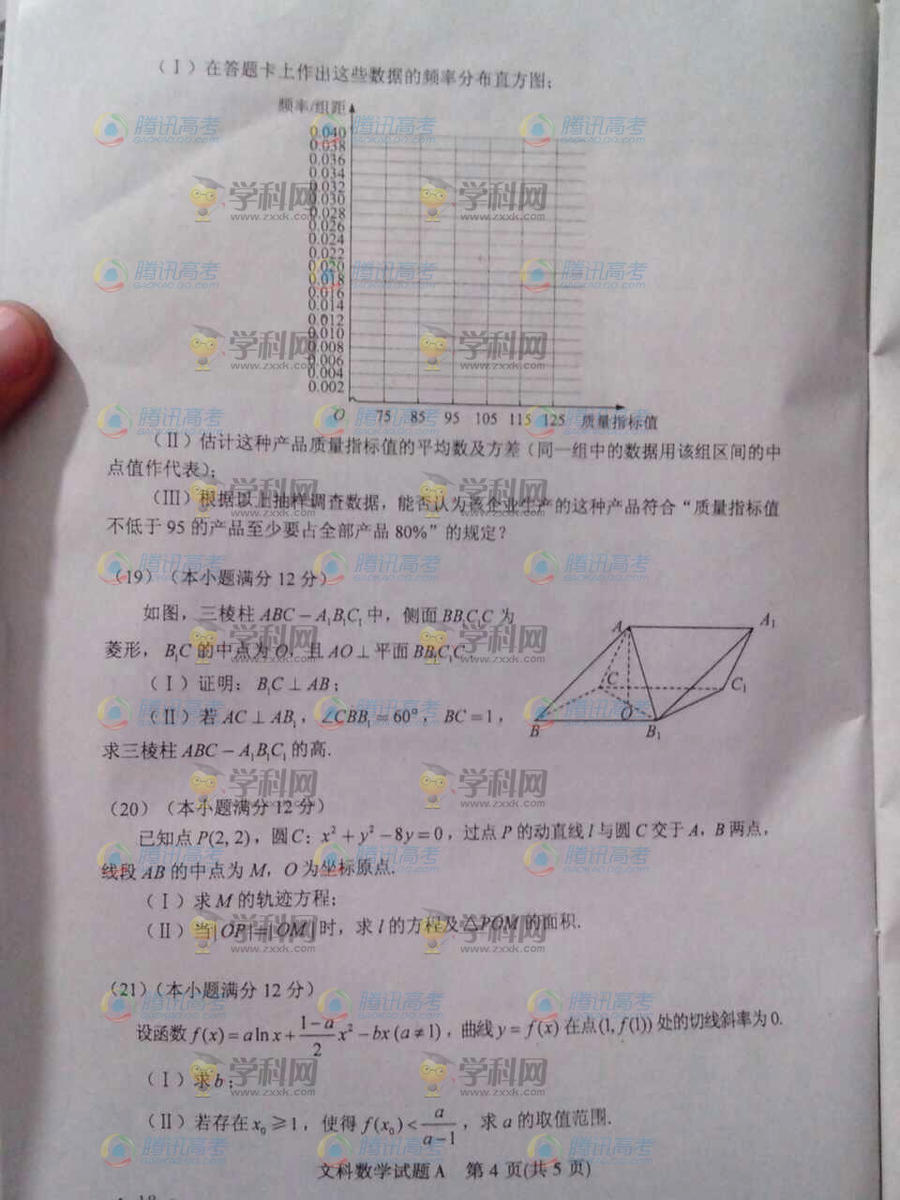 （Ⅰ）在答题卡上作出这些数据的频率分布直方图；
频率/组距
0.040
0.038
0.036
0.034
0.032
0.030
0.028
0.026
0.024
0.022
0.020
0.018
0.016
0.014
0.012
0.010
0.008
0.006
0.004
0.002
O 75 85 95 105 115 125 质量指标值
（Ⅱ）估计这种产品质量指标值的平均数及方差（同一组中的数据用该组区间的中
点值作代表）；
（Ⅲ）根据以上抽样调查数据，能否认为该企业生产的这种产品符合“质量指标值
不低于 95 的产品至少要占全部产品 80%”的规定？
(19)（本小题满分 12 分）
如图，三棱柱 ABC－A₁B₁C₁ 中，侧面 BB₁C₁C 为
菱形，B₁C 的中点为 O，且 AO⊥平面 BB₁C₁C.
（Ⅰ）证明：B₁C⊥AB；
（Ⅱ）若 AC⊥AB₁，∠CBB₁=60°，BC=1，
求三棱柱 ABC－A₁B₁C₁ 的高.
A A₁
C C₁
O
B B₁
(20)（本小题满分 12 分）
已知点 P(2, 2)，圆 C：x²+y²−8y=0，过点 P 的动直线 l 与圆 C 交于 A，B 两点，
线段 AB 的中点为 M，O 为坐标原点.
（Ⅰ）求 M 的轨迹方程；
（Ⅱ）当|OP|=|OM|时，求 l 的方程及△POM 的面积.
(21)（本小题满分 12 分）
设函数 f(x)=a ln x+\frac{1−a}{2}x²−bx (a≠1)，曲线 y=f(x) 在点(1, f(1)) 处的切线斜率为 0.
（Ⅰ）求 b；
（Ⅱ）若存在 x₀≥1，使得 f(x₀)<\frac{a}{a−1}，求 a 的取值范围.
文科数学试题 A 第 4 页(共 5 页)
腾讯高考
GAOKAO.QQ.com
学科网
www.zxxk.com